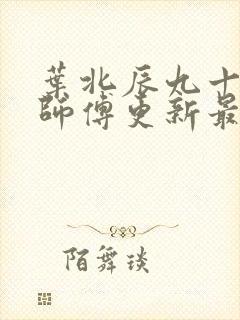 葉北辰九十
師傅更新最
陌舞琰